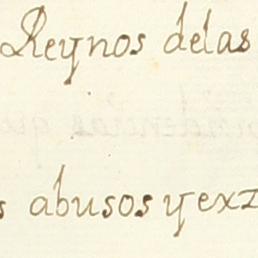 Reynos delas
s abusos y ex